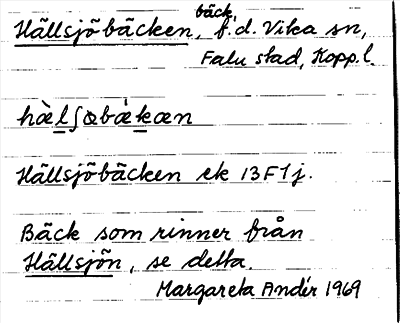 Hällsjöbäcken, bäck, f.d. Vika sn,
Falu stad, Kopp.l.
hàlʃöbä̀kæn
Hällsjöbäcken ek 13F1j.
Bäck som rinner från
Hällsjön, se detta.
Margareta Andér 1969